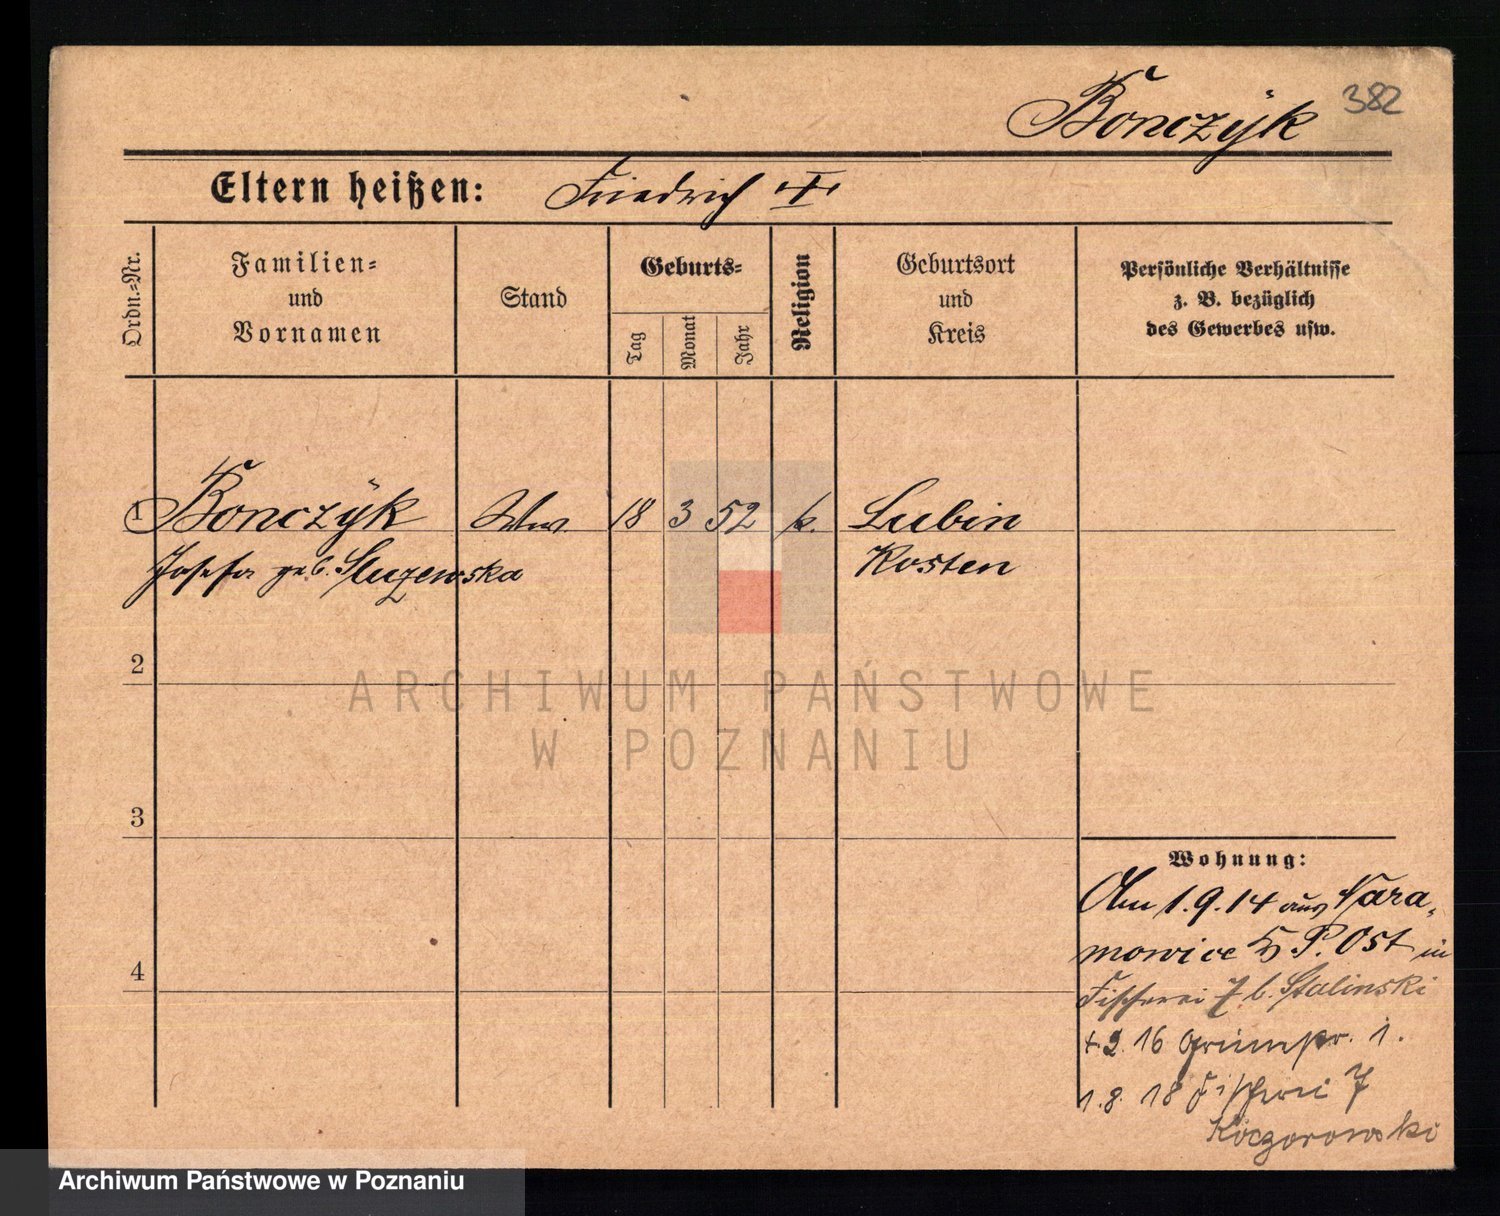 Bonczÿk 382
Eltern heißen: Friedrich
Ordn.-Nr.
Familien-
und
Vornamen
Stand
Geburts-
Tag
Monat
Jahr
Religion
Geburtsort
und
Kreis
Persönliche Verhältnisse
z. B. bezüglich
des Gewerbes usw.
1 Bonczÿk Ww. 18 3 52 k. Lubin
Josefa geb. Sluzewska Kosten
2
ARCHIWUM PAŃSTWOWE
W POZNANIU
3
4
Wohnung:
Am 1.9.14 aus Nara-
mowice P. Ost in
Fischerei 7 b. Stalinski
2. 16 1.
1.8.18 Fischerei 7
Koczorowski
Archiwum Państwowe w Poznaniu